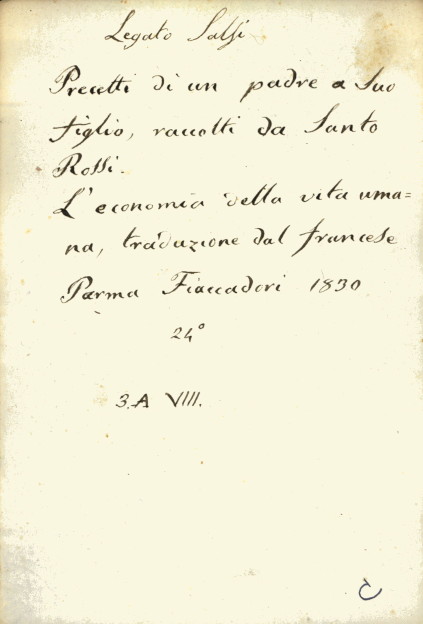 Legato Salsi
Precetti di un padre a suo
figlio, raccolti da Santo
Rossi.
L'economia della vita uma=
na, traduzione dal francese
Parma Fiaccadori 1830
24°
3.A VIII.